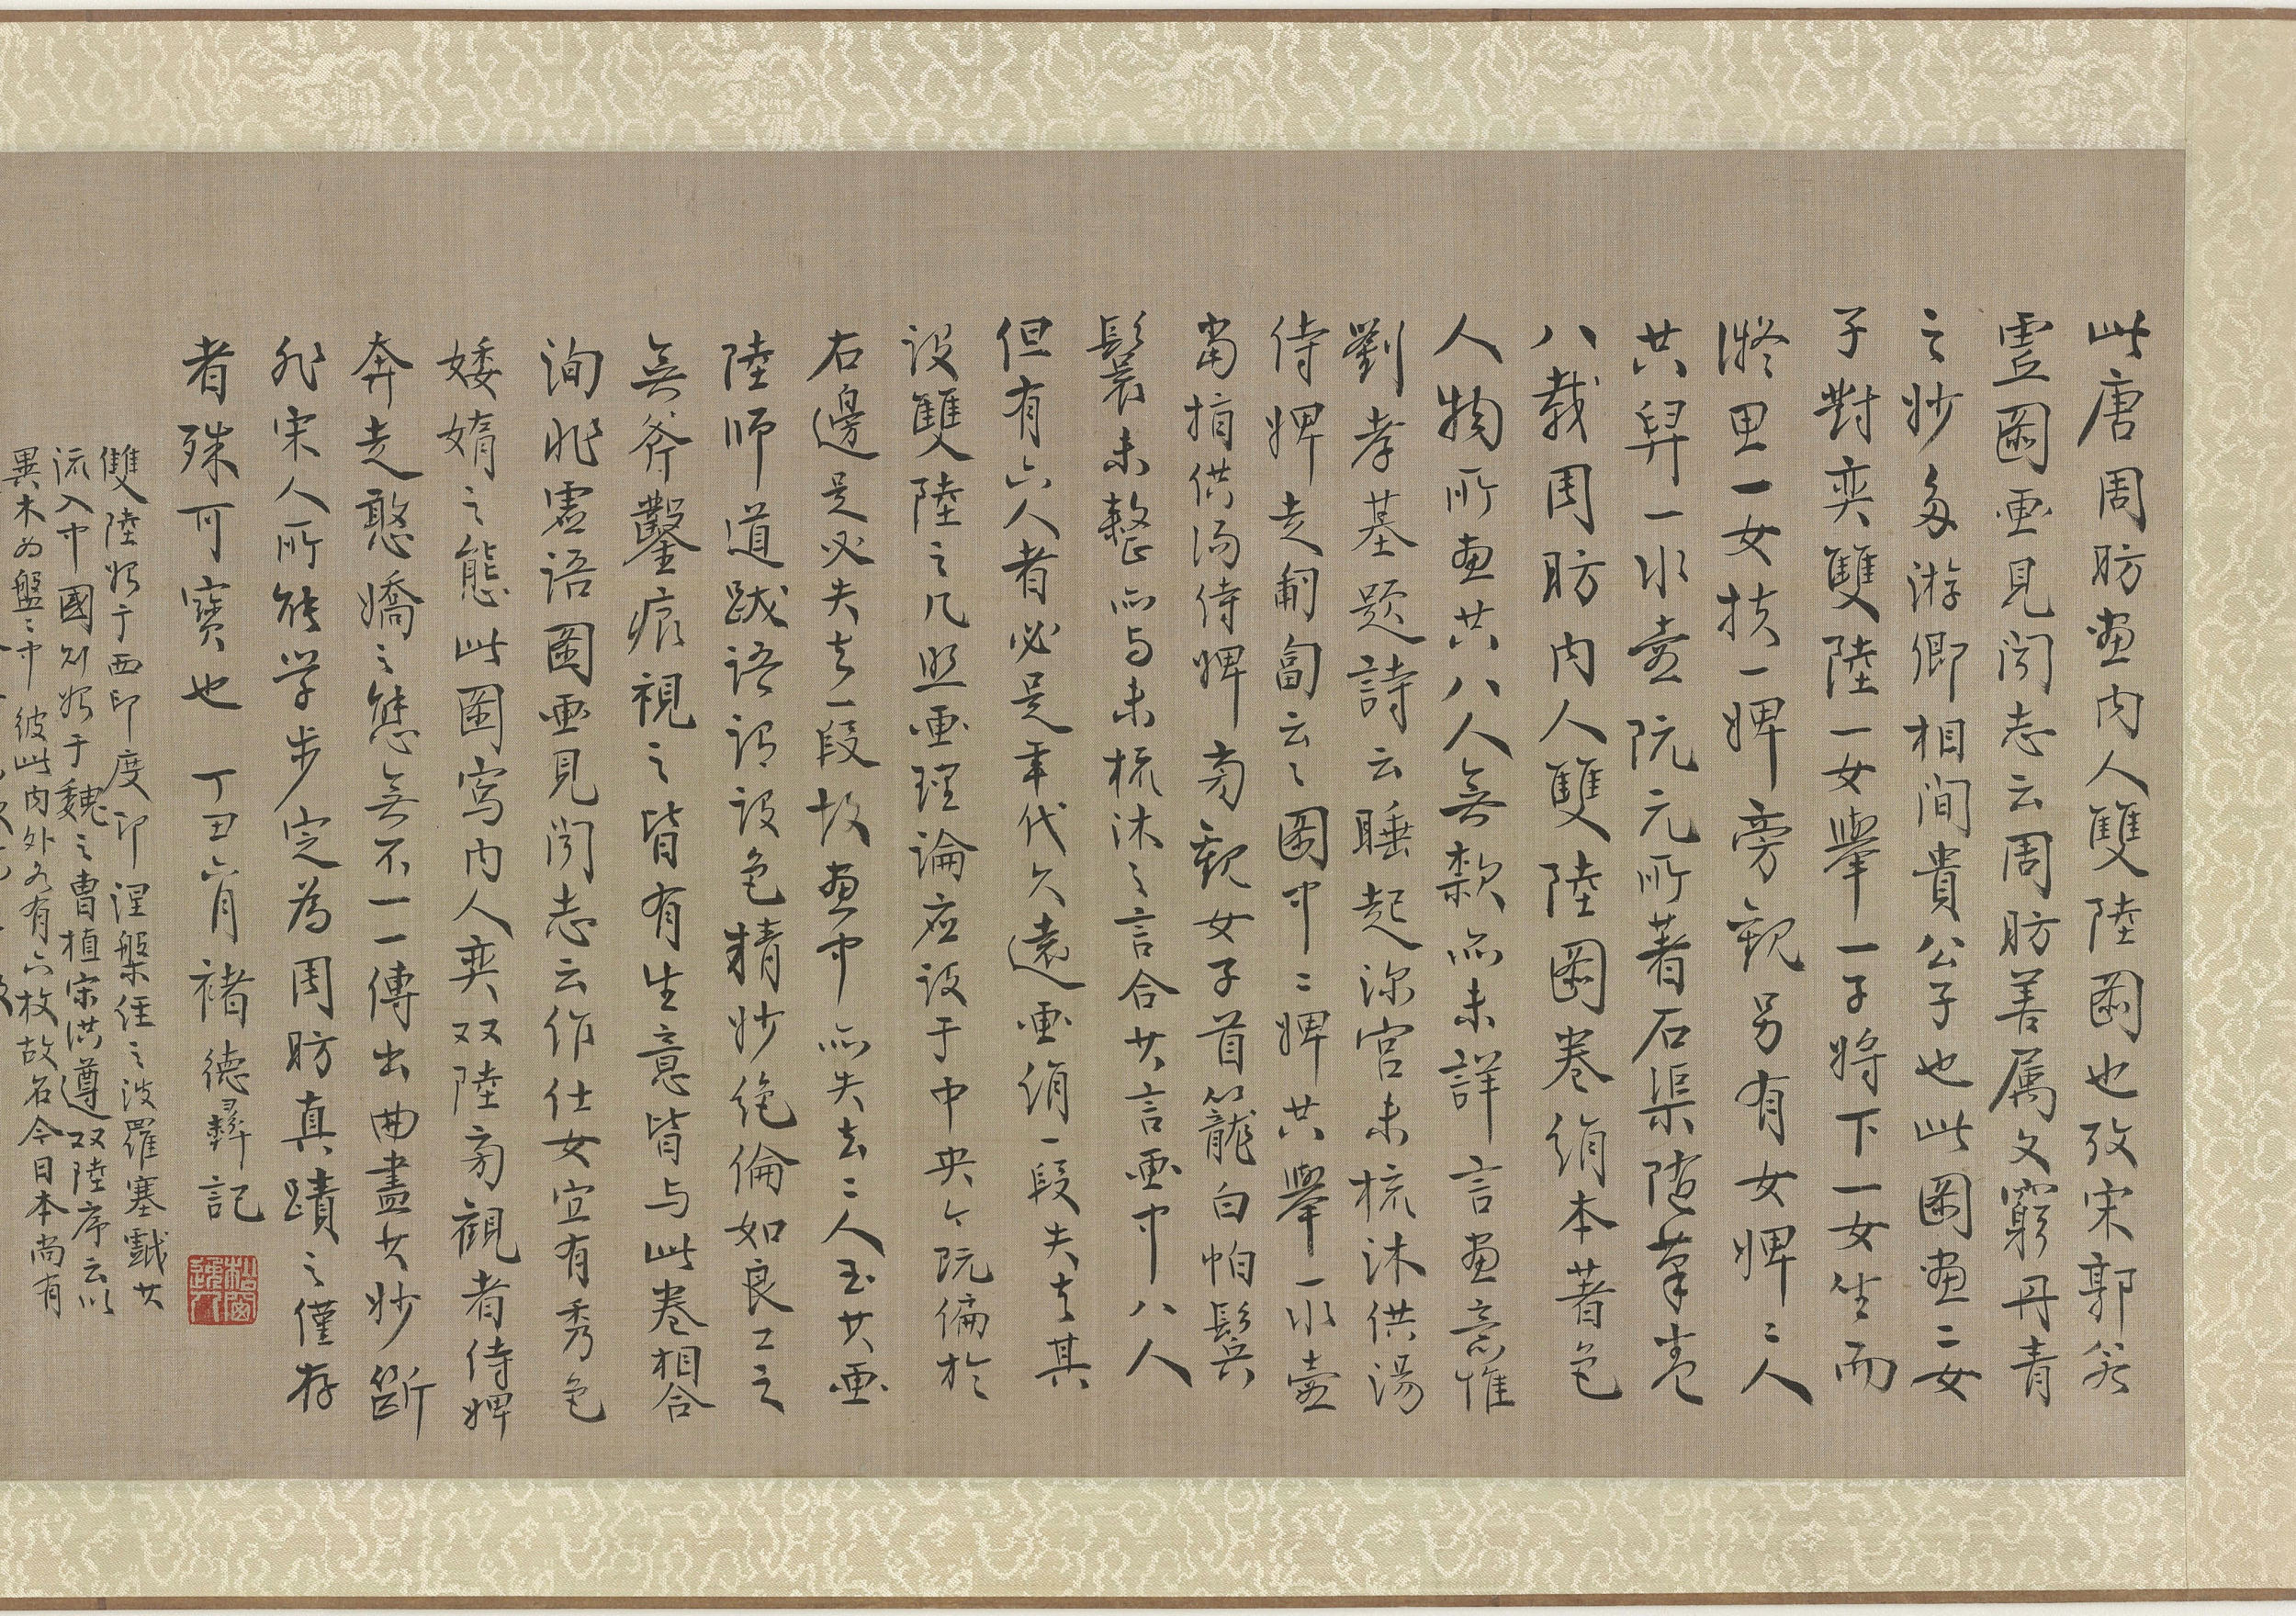 此唐周昉画内人雙陸圖也攷宋郭若
虛圖画見聞志云周昉善属文窮丹青
之妙多游卿相間貴公子也此圖画二女
子對奕雙陸一女舉一子將下一女坐而
凝思一女扶一婢旁觀另有女婢二人
共舁一水壺阮元所著石渠隨筆卷
八載周昉内人雙陸圖卷絹本著色
人物所画共八人無款而未詳言画意惟
劉孝基題詩云睡起深宫未梳沐供湯
侍婢走匍匐云々圖中二婢共舉一水壺
當指供湯侍婢旁觀女子首籠白帕鬢
鬟未整而与未梳沐之言合其言画中八人
但有六人者必是年代久遠画絹一段失去其
設雙陸之几照画理論应設于中央今既偏於
右邊是必失去一段故画中而失去二人至其画
陸师道跋语谓设色精妙绝倫如良工之
無斧鑿痕視之皆有生意皆与此卷相合
洵非虛語圖画見聞志云作仕女宜有秀色
婑媠之態此圖寫内人奕双陸旁觀者侍婢
奔走憨嬌之態無不一一傳出曲盡其妙斷
非宋人所能学步定為周昉真蹟之僅存
者殊可寶也 丁丑六月 褚德彝記
雙陸始于西印度印涅槃經之波羅塞戲其
流入中國则始于魏之曹植宋洪遵双陸序云以
異木为盤々中彼此内外各有六枚故名今日本尚有